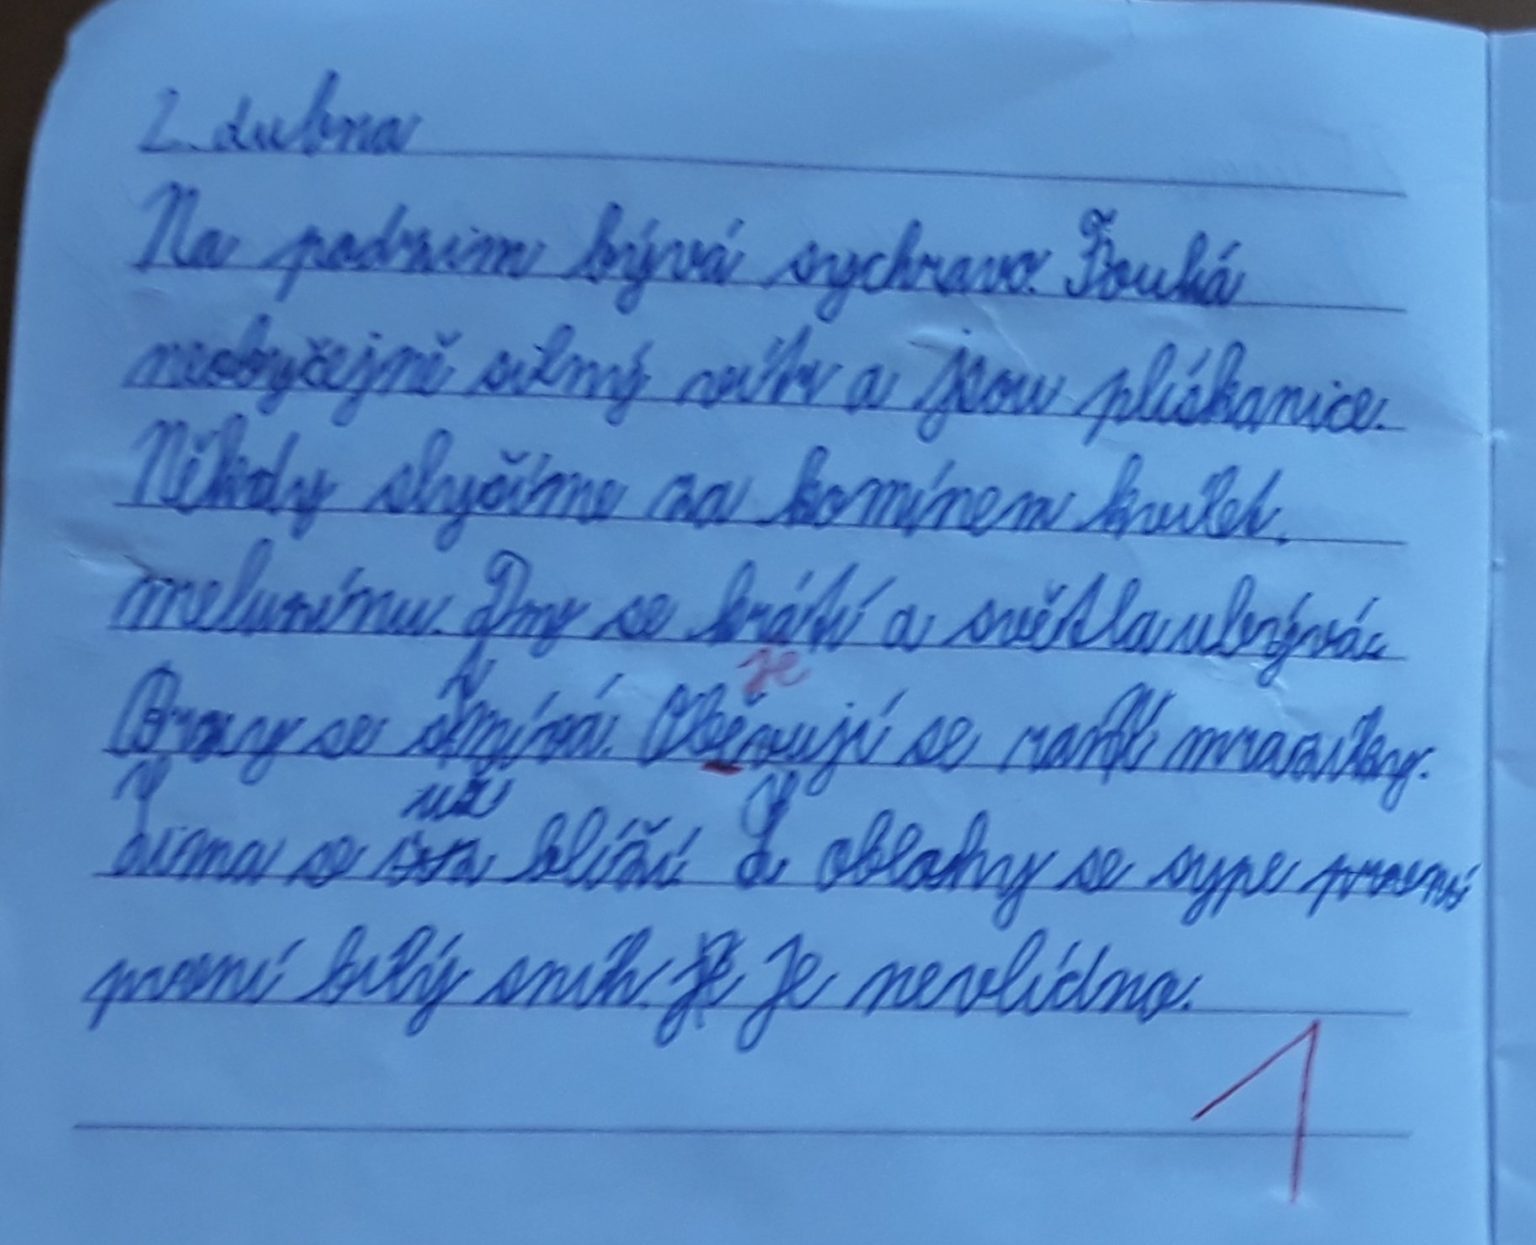 2. dubna
Na podzim bývá sychravo. Fouká
neobyčejně silný vítr a jsou plískanice.
Někdy slyšíme za komínem kvílet
meluzínu. Dny se krátí a světla ubývá.
Brzy se stmívá. Oběvují se ranní mrazíky.
je
Zima se už blíží. Z oblohy se sype
první bílý sníh. Je nevlídno.
1